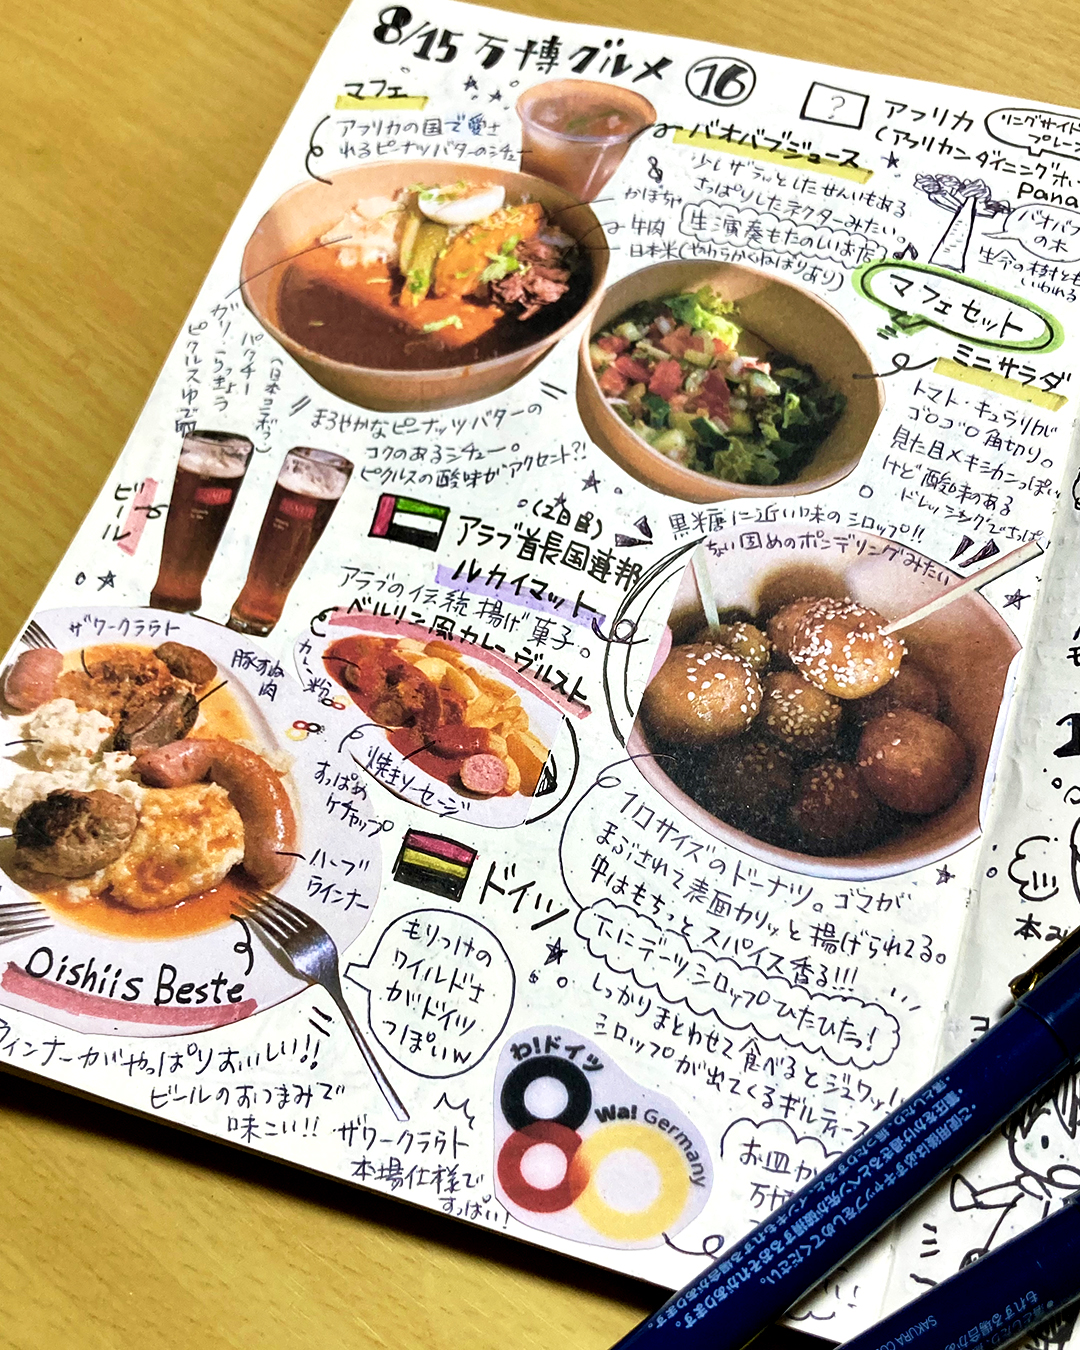 8/15 万博グルメ ⑯
マフェ
アフリカの国で愛さ
れるピーナッツバターのシチュー
バオバブジュース
少しザラッとしたせんいもある
さっぱりしたネクターみたい。
生演奏もたのしいお店♪
かぼちゃ
牛肉
日本米(やわらかくねばりあり)
?
アフリカ
(アフリカンダイニングホ
リングサイド
プレー
Pana
バオバブ
の木
生命の樹とも
いわれる
マフェセット
ミニサラダ
トマト・キュウリが
ゴロゴロ角切り。
見た目メキシカンっぽい
けど酸味のある
ドレッシングでさっぱい
ガリ、らっきょう、
ピクルス
ゆで卵
パクチー
(日本コラボ?)
まろやかなピーナッツバターの
コクのあるシチュー。
ピクルスの酸味がアクセント?!
ビール
(2日目)
アラブ首長国連邦
ルカイマット
アラブの伝統揚げ菓子。
黒糖に近い味のシロップ!!
ちょい固めのポンデリングみたい
1口サイズのドーナツ。ゴマが
まぶされて表面カリッと揚げられてる。
中はもちっとスパイス香る!!!
下にデーツシロップひたひたっ!
しっかりまとわせて食べるとジュワッ!
シロップが出てくるギルティー
お皿か
万博
ベルリン風カレーヴルスト
カレー粉
焼きソーセージ
すっぱめ
ケチャップ
ザワークラウト
豚すね
肉
ハーブ
ウィンナー
Oishiis Beste
ドイツ
もりつけの
ワイルドさ
がドイツ
っぽいw
ウィンナーがやっぱりおいしい!!
ビールのおつまみで
味こい!!
ザワークラウト
本場仕様で
すっぱい!
わ!ドイツ
Wa! Germany
*ご使用後は必ずキャップをしめてください。
*筆圧をかけ過ぎるとペン先が破損するおそれがあります。
SAKURA CO